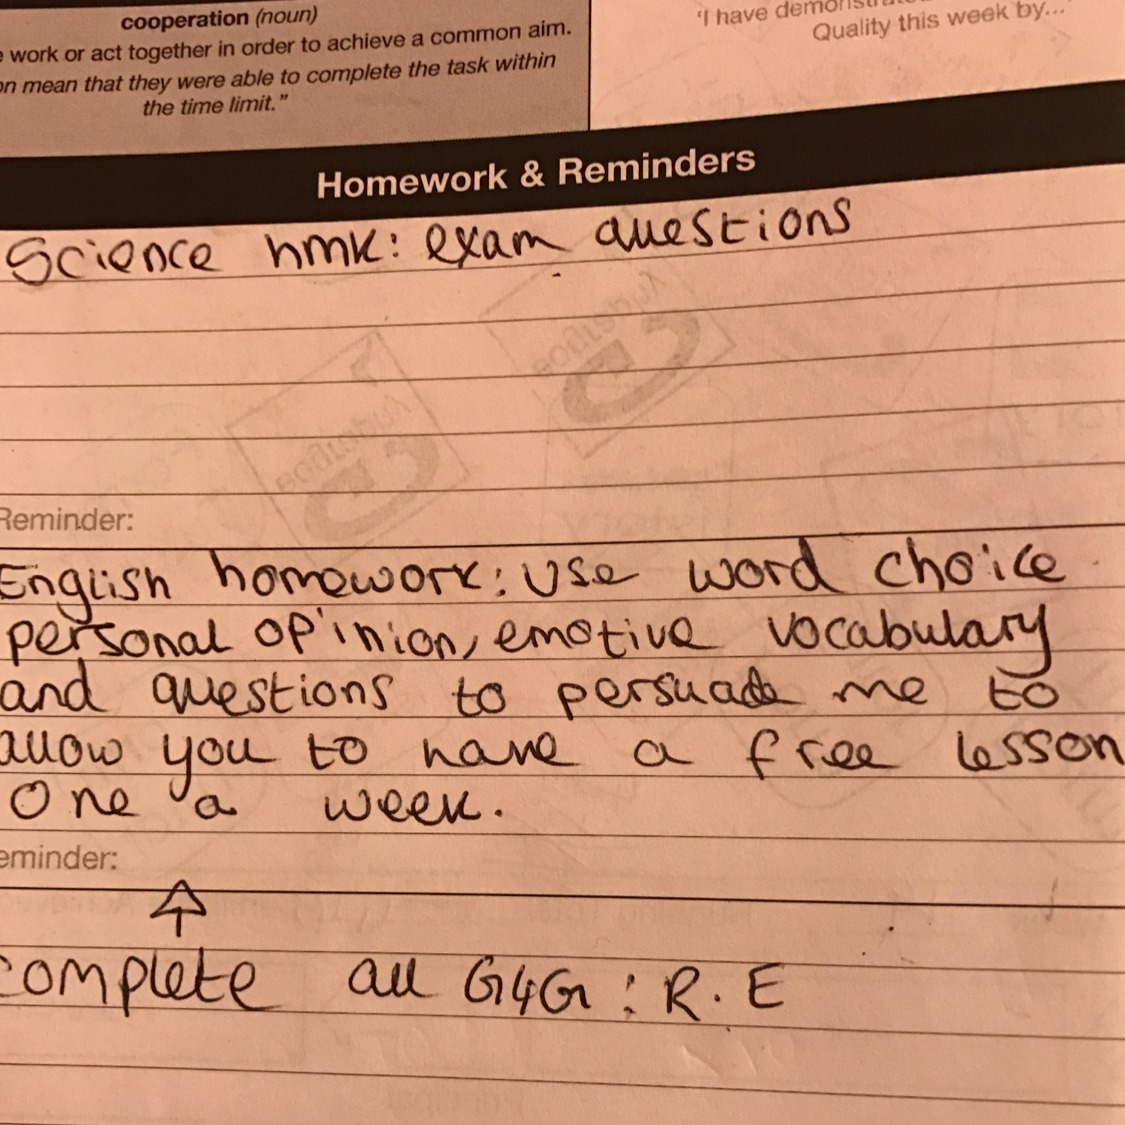 cooperation (noun)
work or act together in order to achieve a common aim.
on mean that they were able to complete the task within
the time limit."
'I have demonstrated
Quality this week by...
Homework & Reminders
Science hmk: exam questions
Reminder:
English homework: Use word choice
personal opinion, emotive vocabulary
and questions to persuade me to
allow you to have a free lesson
One a week.
eminder:
complete all G4G : R.E